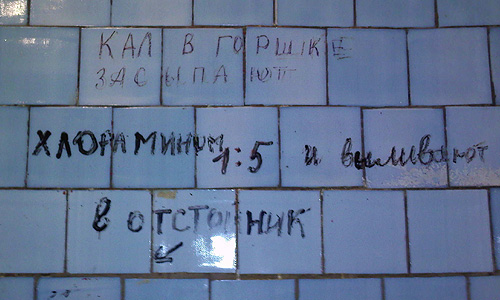 КАЛ В ГОРШКЕ
ЗАСЫПАЮТ
ХЛОРАМИНОМ 1:5 и выливают
в ОТСТОЙНИК